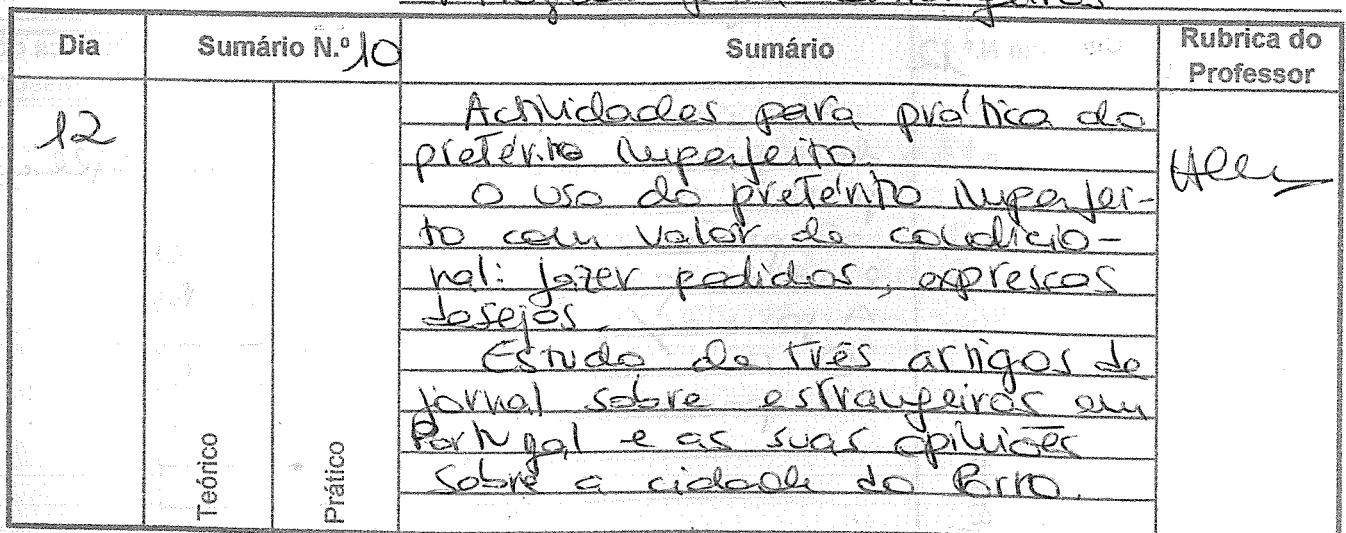 Dia
Sumário N.º 10
Sumário
Rubrica do
Professor
12
Actividades para prática do
pretérito imperfeito.
O uso do pretérito imperfei-
to com valor de condicio-
nal: fazer pedidos, expressas
desejos.
Estudo de três artigos de
jornal sobre estrangeiros em
Portugal e as suas opiniões
sobre a cidade do Porto.
Teórico
Prático